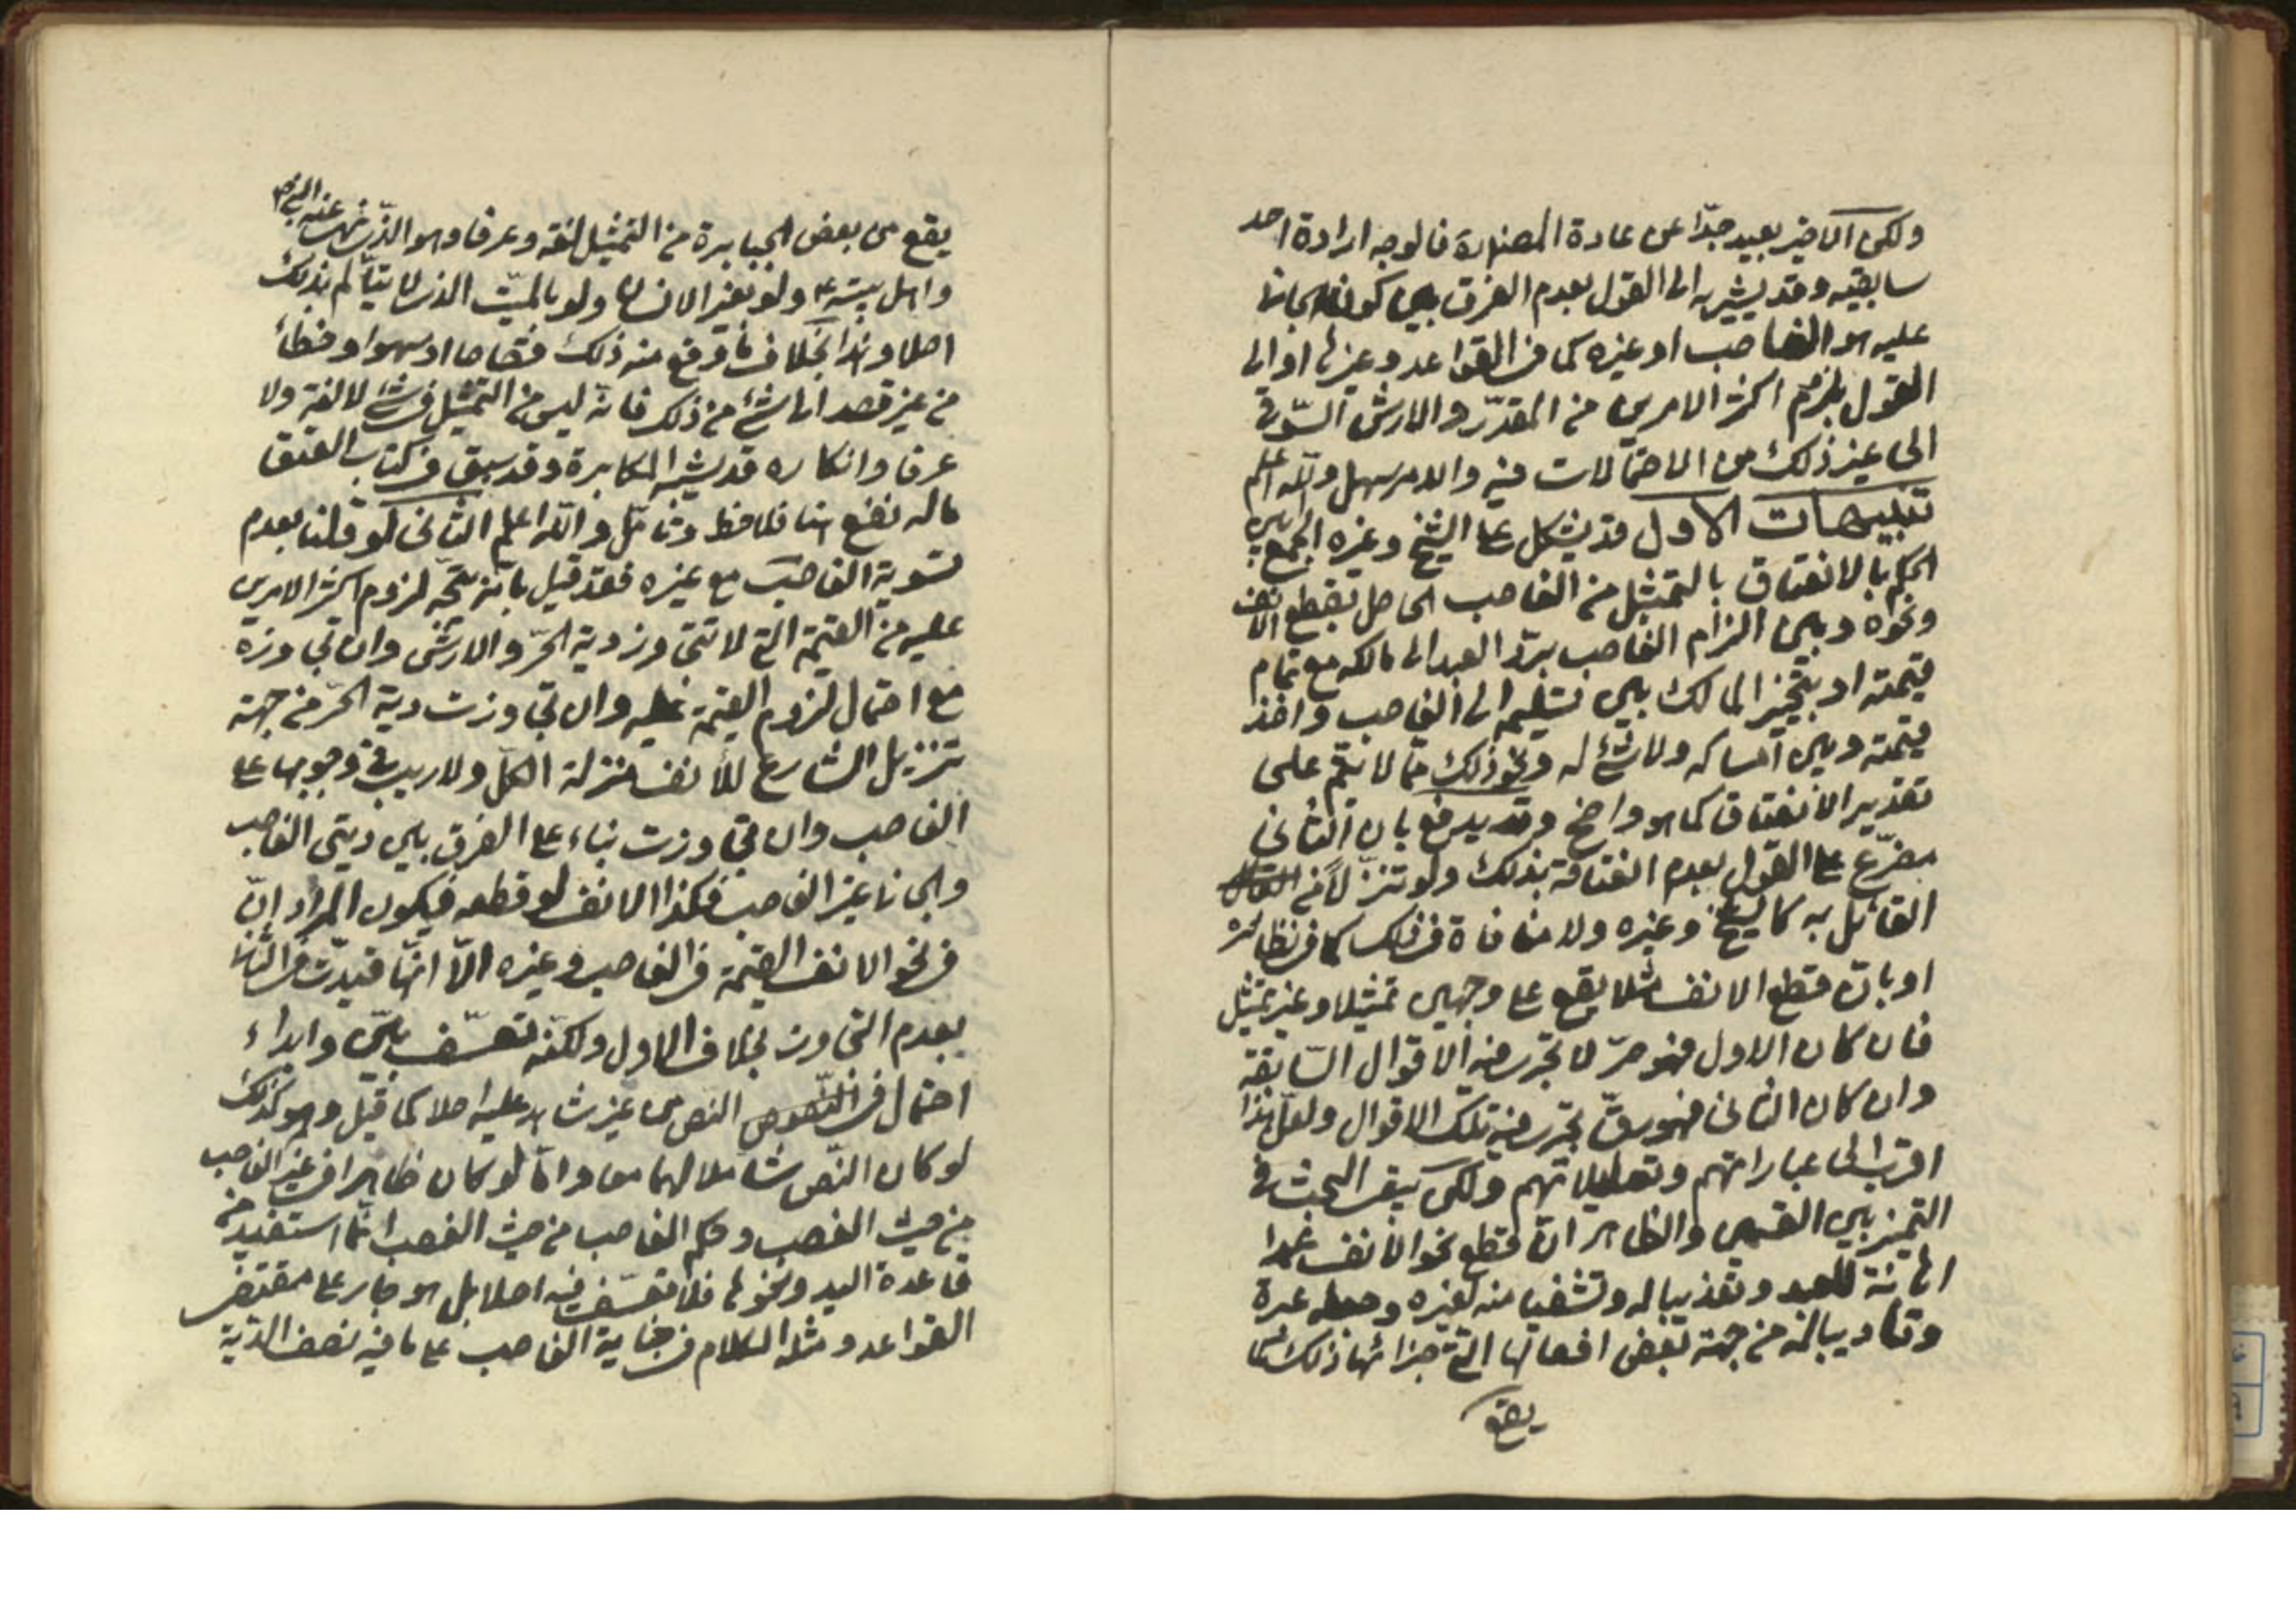 ولكن الاخير بعيد جدّا عن عادة المصنفين فالوجه ارادة احد
سابقيه وقد يشير به الى القول بعدم الفرق بين كون الجاني
عليه هو الغاصب او غيره كما في القواعد وغيرها او الى
القول بلزوم اكثر الامرين من المقدّر والارش السّوقي
الى غير ذلك من الاحتمالات فيه والامر سهل والله اعلم
تنبيهات الاول قد يشكل على الشيخ وغيره الجمع بين
الحكم بالانعتاق بالتمثيل من الغاصب الحاصل بقطع الانف
ونحوه وبين الزام الغاصب بردّ العبد الى مالكه مع تمام
قيمته او بتخيير المالك بين تسليمه الى الغاصب واخذ
قيمته وبين امساكه ولا شئ له ونحو ذلك ممّا لا يتمّ على
تقدير الانعتاق كما هو واضح وقد يدفع بان الثاني
مفرّع على القول بعدم انعتاقه بذلك ولو تنزّلا من
القائل به كالشيخ وغيره ولا منافاة في ذلك كما في نظائره
او بانّ قطع الانف مثلا يقع على وجهين تمثيلا وغير تمثيل
فان كان الاول فهو حرّ لا تجري فيه الاقوال السّابقة
وان كان الثاني فهو رقّ تجري فيه تلك الاقوال ولعلّ هذا
اقرب الى عباراتهم وتعليلاتهم ولكن يبقى البحث في
التميز بين القسمين والظاهر انّ قطع نحو الانف عمدا
اهانة للعبد وتعذيبا له وتشفيا منه لغيره وجعله عبرة
وتأديبا له من جهة بعض افعالها التي جزائها ذلك كما
يقع
يقع من بعض الجبابرة من التمثيل لغة وعرفا وهو الذي نهى عنه النبي ص
واهل بيته ع ولو بغير الانسان ولو بالميّت الذي لا يتألم بذلك
اصلا وهذا بخلاف ما وقع منه ذلك قصاصا او سهوا او خطأ
من غير قصد الى شئ من ذلك فانه ليس من التمثيل في شئ لا لغة ولا
عرفا وانكاره قد يشبه المكابرة وقد سبق في كتاب العتق
ما له نفع هنا فلاحظ وتأمّل والله اعلم الثاني لو قلنا بعدم
تسوية الغاصب مع غيره فقد قيل بانه يتجّه لزوم اكثر الامرين
عليه من القيمة التي لا تتجاوز دية الحرّ والارش وان تجاوزه
مع احتمال لزوم القيمة عليه وان تجاوزت دية الحرّ من جهة
تنزيل الشارع للأنف منزلة الكلّ ولا ريب في وجوبها على
الغاصب وان تجاوزت بناء على الفرق بين ديتي الغاصب
والجاني غير الغاصب فكذا الانف لو قطعه فيكون المراد انّ
في نحو الانف القيمة في الغاصب وغيره الّا انّها قيدت في الثاني
بعدم التجاوز بخلاف الاول ولكنّه تعسّف بيّن وابداء
احتمال في النصوص النص من غير شاهد عليه اصلا كما قيل وهو كذلك
لو كان النّص شاملا لهما معا وامّا لو كان ظاهرا في غير الغاصب
من حيث الغصب وحكم الغاصب من حيث الغصب انّما استفيد من
قاعدة اليد ونحوها فلا تعسّف فيه اصلا بل هو جار على مقتضى
القواعد ومثله الكلام في جناية الغاصب على ما فيه نصف الدّية